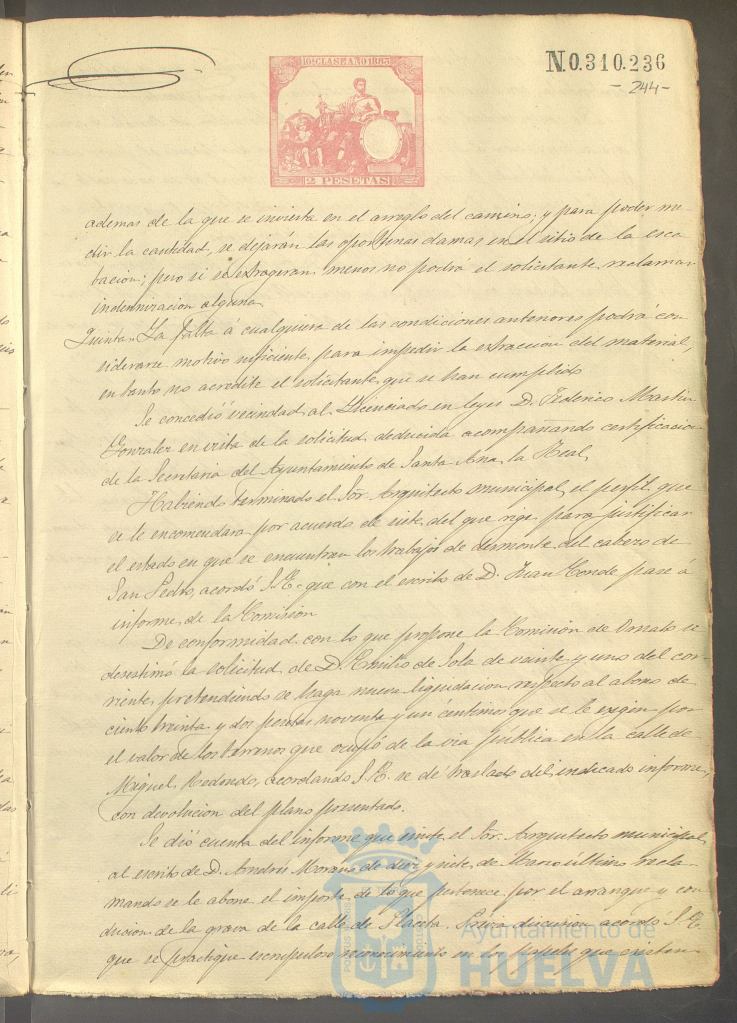 10ª CLASE AÑO 1885
2 PESETAS
N0.310.236
-244-
ademas de la que se invierta en el arreglo del camino; y para poder me-
dir la cantidad, se dejarán las oportunas damas en el sitio de la esca-
bacion; pero si se extrageran menos no podrá el solicitante reclamar
indemnizacion alguna.
Quinta. La falta á cualquiera de las condiciones anteriores podrá con
siderarse motivo suficiente, para impedir la extraccion del material,
en tanto no acredite el solicitante que se han cumplido
Se concedió vecindad al Licenciado en leyes D. Federico Martin
Gonzalez en vista de la solicitud deducida acompañando certificacion
de la Secretaria del Ayuntamiento de Santa Ana la Real,
Habiendo terminado el Sor. Arquitecto municipal el perfil que
se le encomendara por acuerdo de siete del que rige para justificar
el estado en que se encuentran los trabajos de desmonte del cabezo de
San Pedro, acordó S.E. que con el escrito de D. Juan Conde pase á
informe de la Comision
De conformidad con lo que propone la Comision de Ornato se
desestimó la solicitud de D. Emilio de Sola de veinte y uno del cor-
riente, pretendiendo se haga nueva liquidacion respecto al abono de
ciento treinta y dos pesetas noventa y un céntimos que se le exigen por
el valor de los terrenos que ocupó de la via pública en la calle de
Miguel Redondo, acordando S.E. se dé traslado del indicado informe,
con devolucion del plano presentado.
Se dió cuenta del informe que emite el Sor. Arquitecto municipal
al escrito de D. Andrés Moreno de diez y siete de Marzo último recla-
mando se le abone el importe de lo que pertenece por el arranque y con
duccion de la grava de la calle de Placeta. Previa discusion acordó S.E.
que se practique escrupuloso reconocimiento en los papeles que existan
Ayuntamiento de
HUELVA